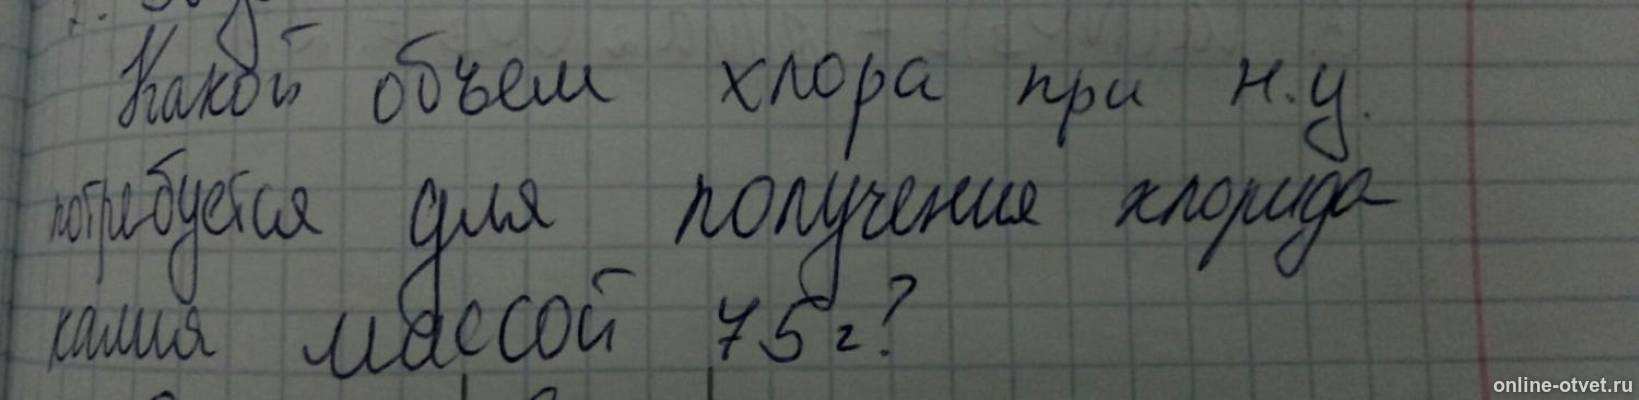 Какой объем хлора при н.у.
потребуется для получения хлорида
калия массой 75г?
online-otvet.ru